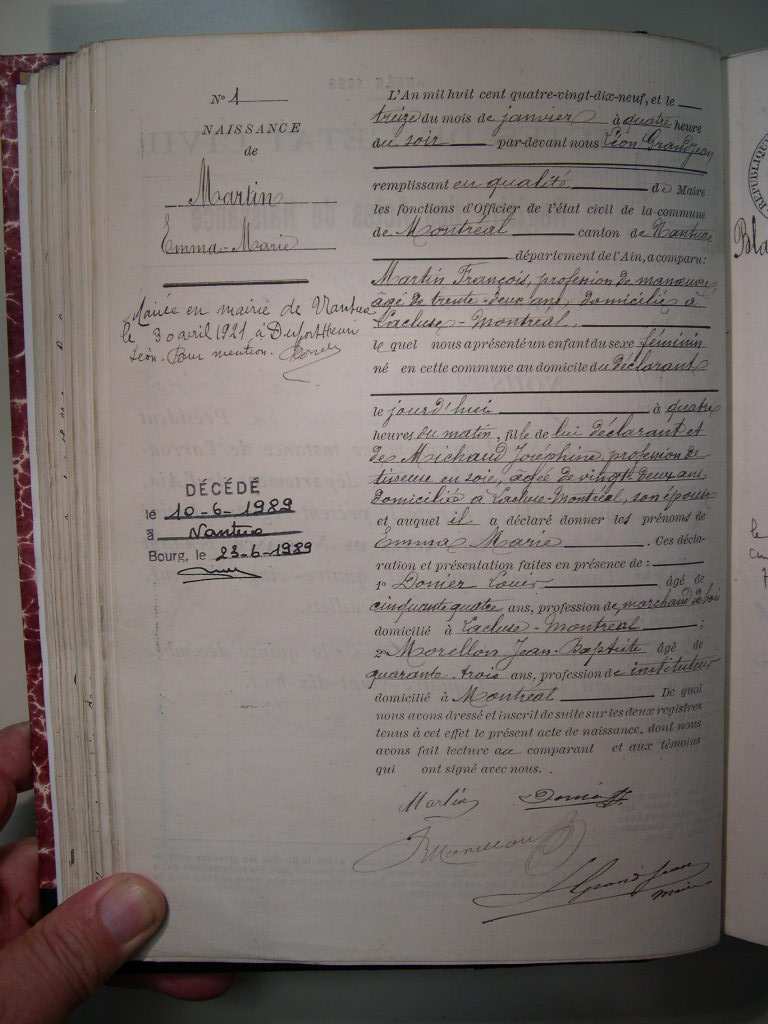 N° 1
NAISSANCE
de
Martin
Emma-Marie
Mariée en mairie de Nantua
le 30 avril 1921 à Dufort Henri
Léon. Pour mention.
DÉCÉDÉ
le 10-6-1989
à Nantua
Bourg, le 23-6-1989
L'An mil huit cent quatre-vingt-dix-neuf, et le
treize du mois de janvier à quatre heure
du soir par-devant nous Léon Grandjean
remplissant en qualité de Maire
les fonctions d'Officier de l'état civil de la commune
de Montréal canton de Nantua
département de l'Ain, a comparu:
Martin François, profession de manœuvre
âgé de trente-deux ans, domicilié à
Lacluse-Montréal.
le quel nous a présenté un enfant du sexe féminin
né en cette commune au domicile du déclarant
le jourd'hui à quatre
heures du matin, fille de lui déclarant et
de Michaud Joséphine, profession de
tisseuse en soie, âgée de vingt deux ans
domiciliée à Lacluse-Montréal, son épouse
et auquel il a déclaré donner les prénoms de
Emma Marie. Ces décla-
ration et présentation faites en présence de :
1° Donier Louis âgé de
cinquante quatre ans, profession de marchand de bois
domicilié à Lacluse-Montréal ;
2° Morellon Jean-Baptiste âgé de
quarante-trois ans, profession de instituteur
domicilié à Montréal De quoi
nous avons dressé et inscrit de suite sur les deux registres
tenus à cet effet le présent acte de naissance, dont nous
avons fait lecture au comparant et aux témoins
qui ont signé avec nous.
Martin Donier
Morellon
L Grandjean
maire
RÉPUBLIQUE
Bla